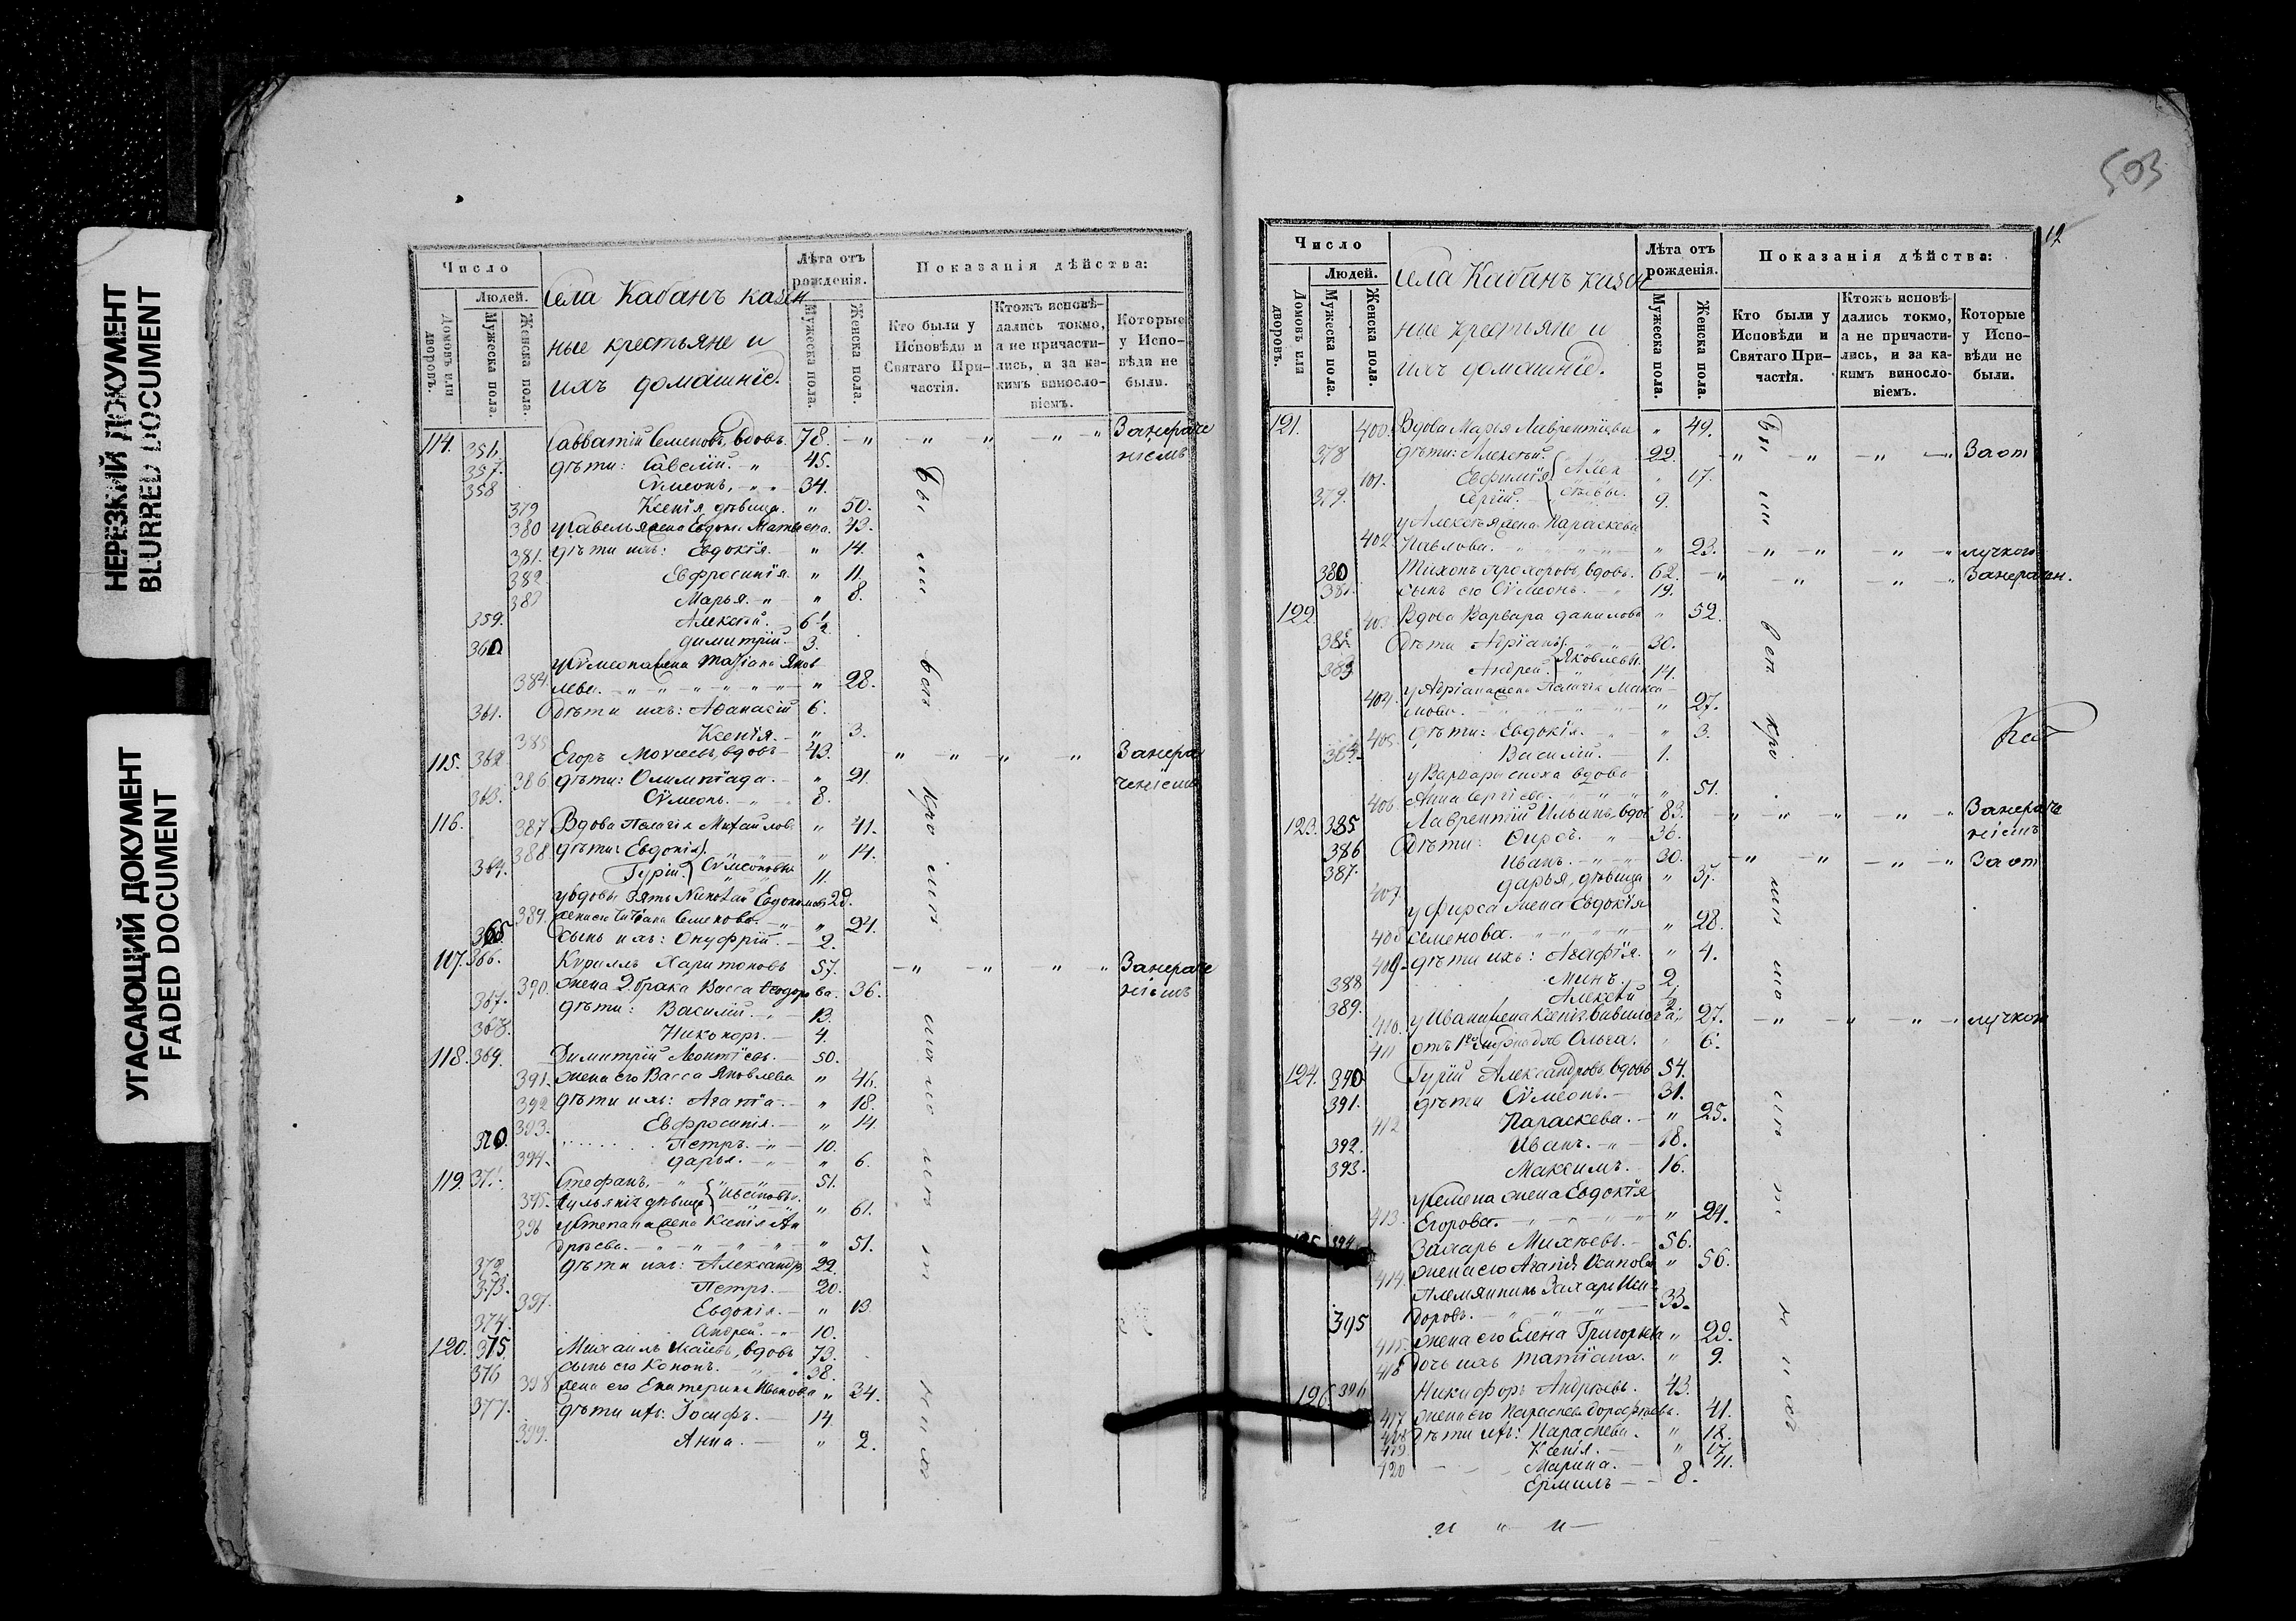 НЕРЕЗКИЙ ДОКУМЕНТ
BLURRED DOCUMENT
УГАСАЮЩИЙ ДОКУМЕНТ
FADED DOCUMENT
Число
Людей.
Домовъ или дворовъ.
Мужеска пола.
Женска пола.
Села Кабанъ казен
ные крестьяне и
ихъ домашніе.
Лѣта отъ рожденія.
Мужеска пола.
Женска пола.
Показанія дѣйства:
Кто были у Исповѣди и Святаго Причастія.
Ктожъ исповѣ-дались токмо, а не причасти-лись, и за ка-кимъ винословіемъ.
Которые у Испо-вѣди не были.
114. 356. Савватій Семеновъ, вдовъ. 78. Занераче
357. дѣти: Савелій. 45. ніемъ
358 Сѵмеонъ. 34.
379 Ксенія дѣвица. 50.
380 у Савелья жена Евдокі Матвеева. 43.
381. дѣти ихъ: Евдокія. 14.
382 Евфросинія. 11.
383 Марья. 8.
359. Алексѣй. 6½
360 Димитрій. 3.
у Сѵмеона жена Татіана Яков
384. лева. 28.
361. Дѣти ихъ: Афанасій 6.
385 Ксенія. 3.
115. 362 Егоръ Моисеевъ, вдовъ 43. Занера
386 дѣти: Олимпіада. 21. ченіемъ
363. Сѵмеонъ. 8.
116. 387 Вдова Пелагія Михайлов. 41.
388 дѣти: Евдокія 14.
364. Гурій. Сѵмеоновы 11.
у вдовы зять Николай Евдокимовъ 28.
389. жена его Татіана Семенова 24.
365 сынъ ихъ: Онуфрій. 2.
117. 366. Кириллъ Харитоновъ 57. Занераче
390. жена 2 брака Васса Ѳеодорова. 36. ніемъ
367. дѣти: Василій. 13.
368. Никоноръ. 4.
118. 369. Димитрій Леонтіевъ. 50.
391. жена его Васса Яковлева 46.
392 дѣти ихъ: Агапіа. 18.
393. Евфросинія. 14.
370. Петръ. 10.
394. Дарья. 6.
119. 371. Стефанъ. 51.
395. дѣвица Ивановы. 61.
396 у Степана жена Ксенія Ан
дреева. 51.
372. дѣти ихъ: Александр 22.
373. Петръ. 20.
397. Евдокія. 13.
374. Андрей. 10.
120. 375. Михаилъ Исаіевъ, вдовъ 73.
376 сынъ его Кононъ. 38.
398 жена его Екатерина Иванова 34.
377. дѣти ихъ: Іосифъ. 14.
399. Анна. 2.
503
12
Число
Людей.
Домовъ или дворовъ.
Мужеска пола.
Женска пола.
Села Кабанъ казен
ные крестьяне и
ихъ домашніе.
Лѣта отъ рожденія.
Мужеска пола.
Женска пола.
Показанія дѣйства:
Кто были у Исповѣди и Святаго При-частія.
Ктожъ исповѣ-дались токмо, а не причасти-лись, и за ка-кимъ винословіемъ.
Которые у Испо-вѣди не были.
121. 400. Вдова Марья Лаврентіева 49.
378 дѣти: Алексѣй. 22. За от
401. Евфимія Алек 17.
379. Сергій. сѣевы. 9.
у Алексѣя жена Параскева
402 Павлова. 23. лучкою
380 Тихонъ Прохоровъ, вдовъ. 62. Занерачен.
381. сынъ его Сѵмеонъ. 19.
122. 403. Вдова Варвара Данилова 52.
382 Дѣти Адріанъ 30.
383 Андрей. Яковлевы. 14.
404. у Адріана жена Пелагія Макси
мова. 27.
405. Дѣти: Евдокія. 3.
384. Василій. 1.
у Варвары сноха вдова
406. Анна Сергіева. 51.
123. 385 Лаврентій Ильинъ, вдов 83. Занераче
386 Дѣти: Ѳирсъ. 36. ніемъ
387. Иванъ. 30. За от
407 Дарья, дѣвица 37.
у Фирса жена Евдокія
408 Семенова. 28.
409. дѣти ихъ: Агафія. 4.
388 Минъ. 2.
389. Алексѣй ½
410. у Ивана жена Ксенія Вавилова; 27. лучкою
411 Ольга. 6.
124. 390 Гурій Александровъ, вдовъ 54.
391. дѣти Сѵмеонъ. 31.
412 Параскева. 25.
392. Иванъ. 18.
393. Максимъ. 16.
у Семена жена Евдокія
413. Егорова. 24.
125. 394 Захаръ Михѣевъ. 56.
414. жена его Агапія Осипова 56.
Племянникъ Захаръ Иси
395 доровъ. 33.
415. жена его Елена Григорьева 29.
416 Дочь ихъ Татіана. 9.
126. 396 Никифоръ Андрѣевъ. 43.
417 жена его Параскева Дорофѣева. 41.
418 Дѣти ихъ: Параскева. 18.
419 Ксенія. 17.
420 Марина. 11.
Ермилъ 8.